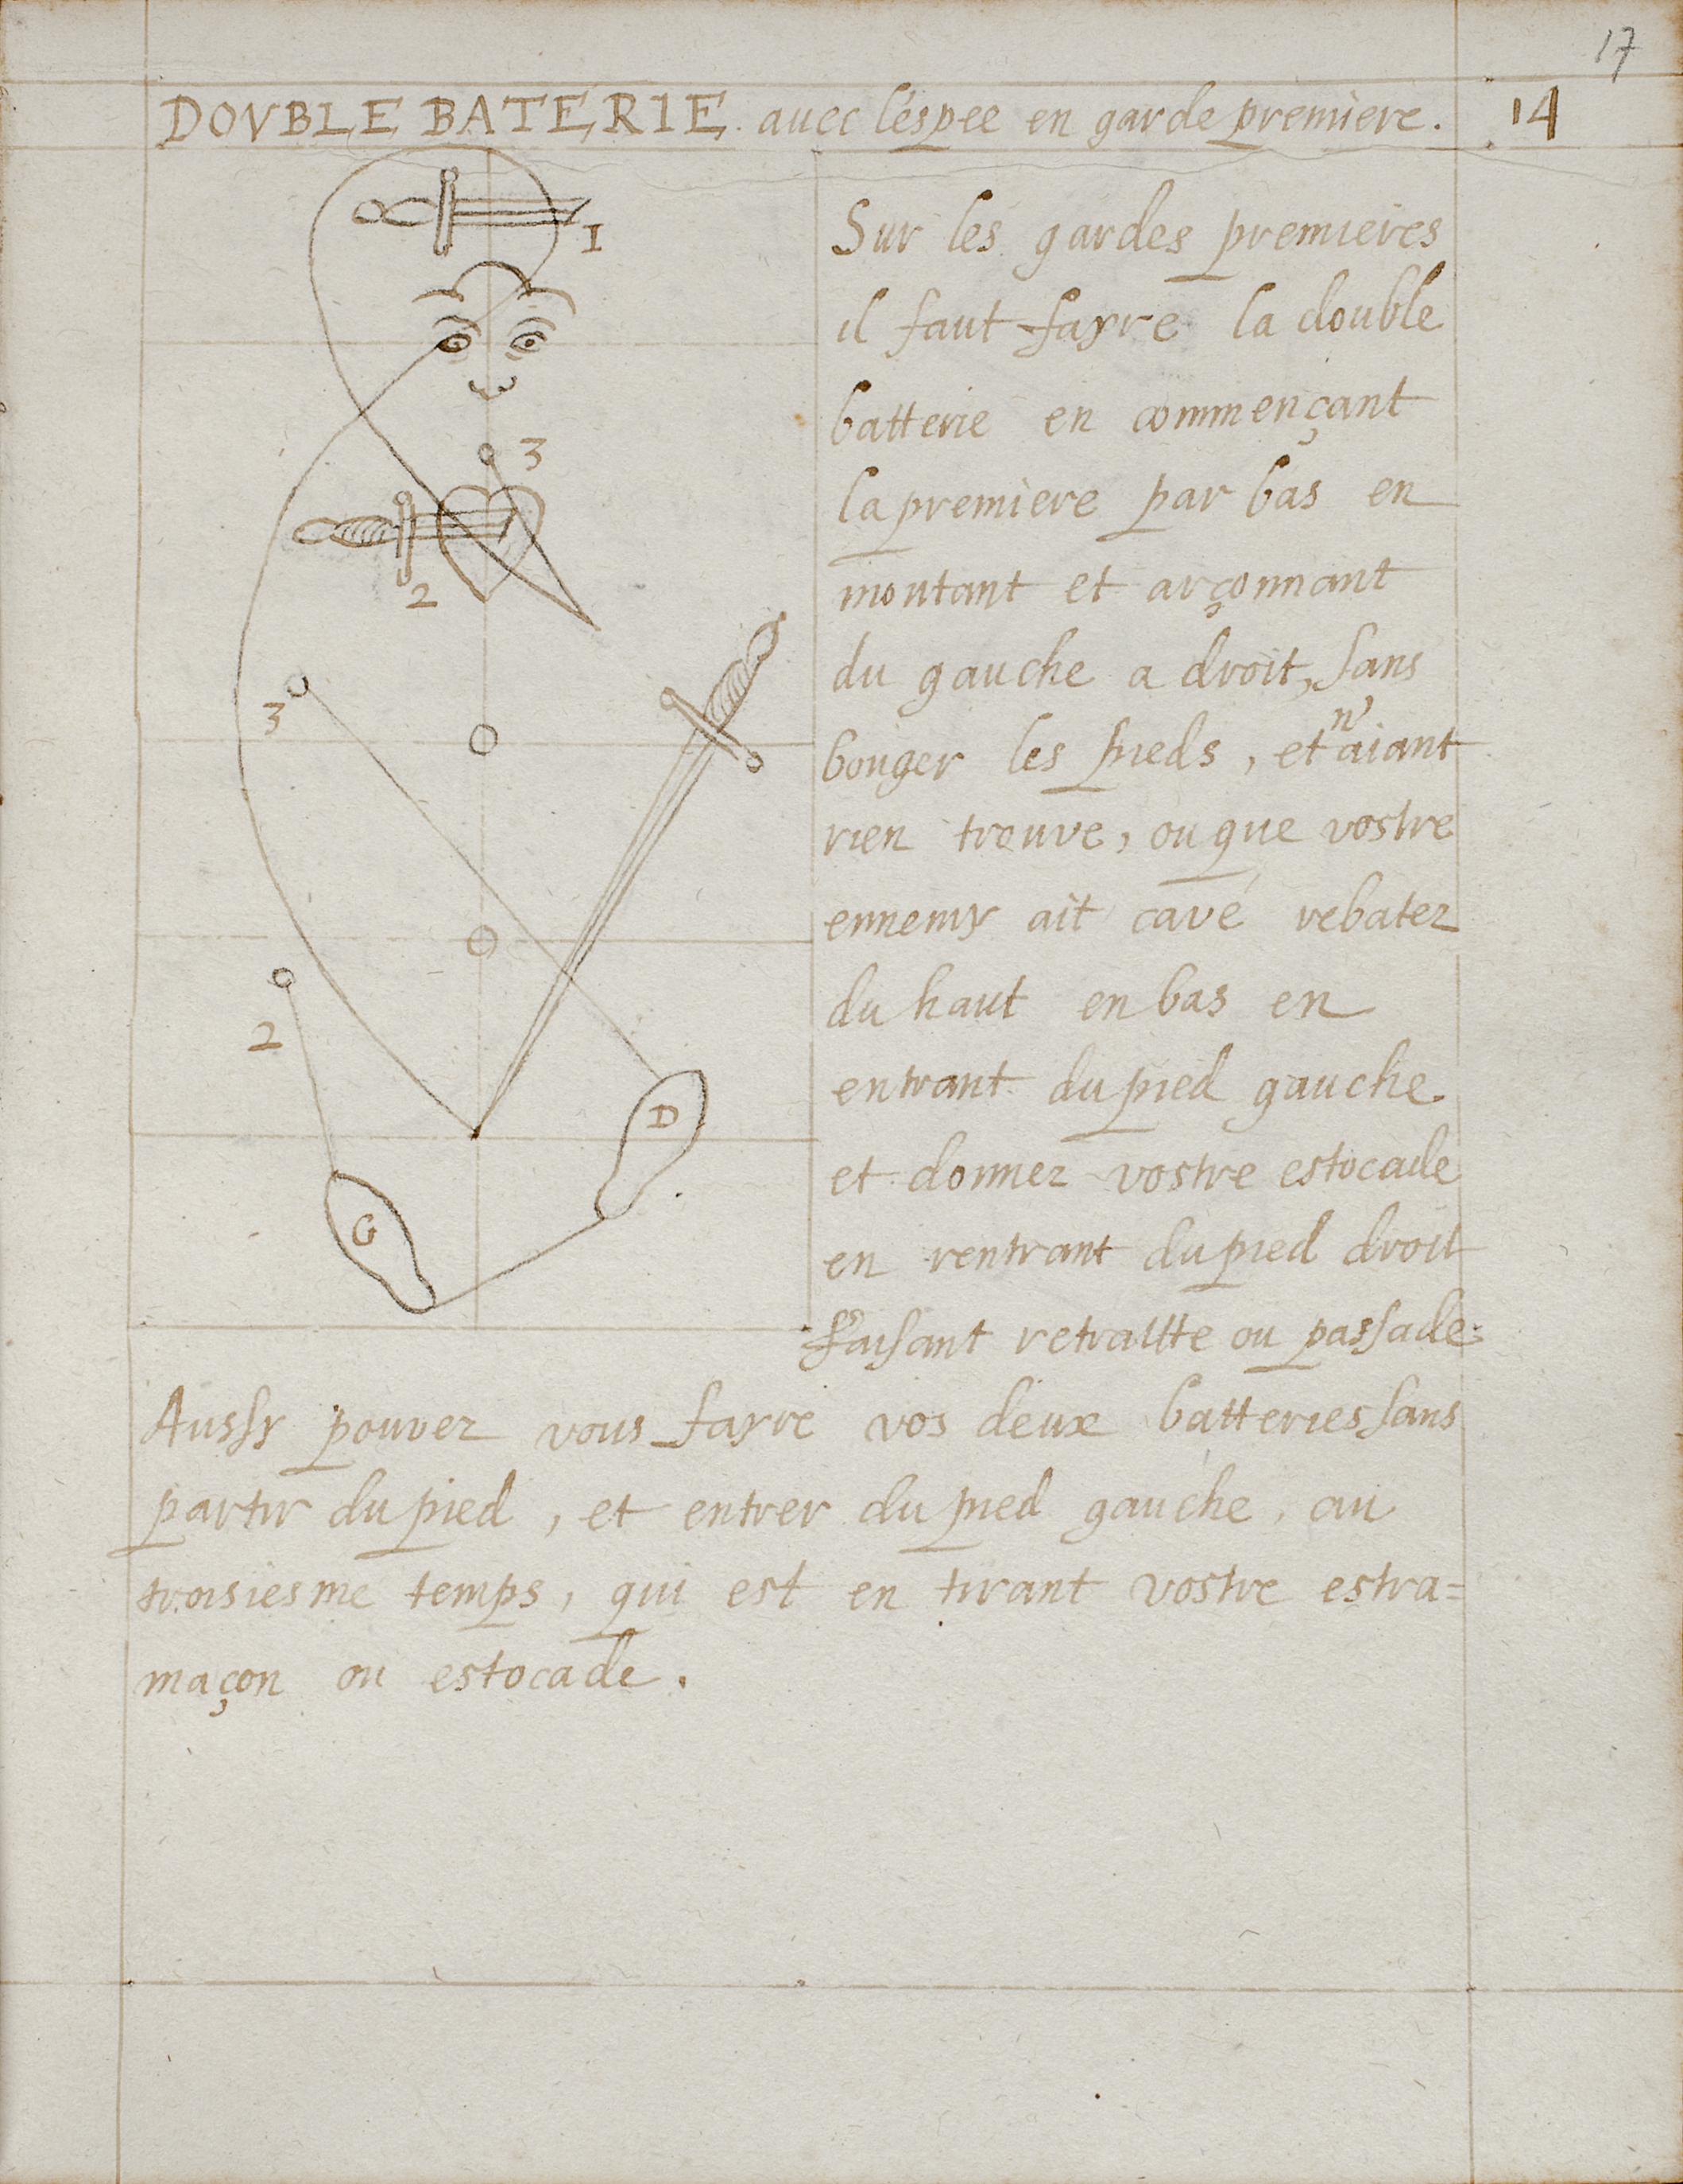 17
DOVBLE BATERIE. avec l'espee en garde premiere. 14
1
Sur les gardes premieres
il faut fayre la double
batterie en commençant
3
la premiere par bas en
2
montant et arçonnant
du gauche a droit, sans
3
n'
bouger les pieds, et aiant
rien trouve, ou que vostre
ennemy ait cavé rebatez
du haut en bas en
2
entrant du pied gauche.
D
et donnez vostre estocade
G
en rentrant du pied droit
faisant retraitte ou passade.
Aussy pouvez vous fayre vos deux batteries sans
partir du pied, et entrer du pied gauche, au
troisiesme temps, qui est en tirant vostre estra=
maçon ou estocade.